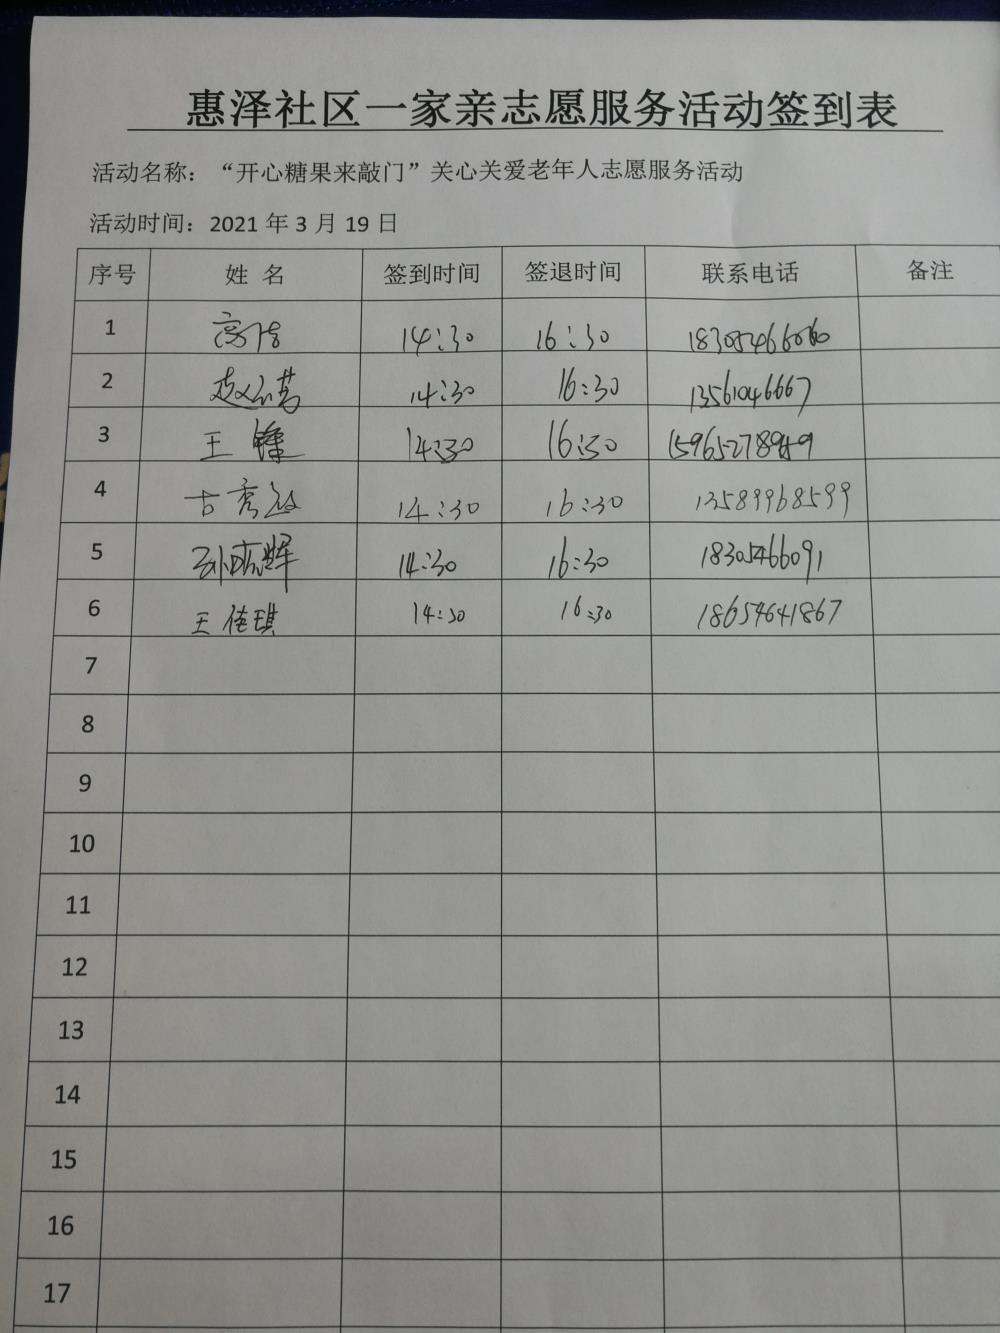 惠泽社区一家亲志愿服务活动签到表
活动名称：“开心糖果来敲门”关心关爱老年人志愿服务活动
活动时间：2021 年 3 月 19 日
序号 姓 名 签到时间 签退时间 联系电话 备注
1 高洁 14:30 16:30 18305466060
2 赵 14:30 16:30 13561046667
3 王锋 14:30 16:30
4 古秀 14:30 16:30 13589968599
5 孙晓辉 14:30 16:30 18305466091
6 王佳琪 14:30 16:30 18654641867
7
8
9
10
11
12
13
14
15
16
17